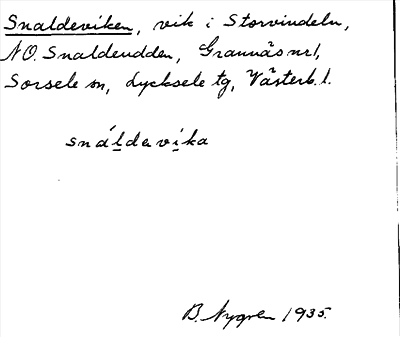 Snaldeviken, vik i Storvindeln,
NO. Snaldeudden, Grannäs nr 1,
Sorsele sn, Lycksele tg, Västerb. l.
snáldevíka
B. Nygren 1935.